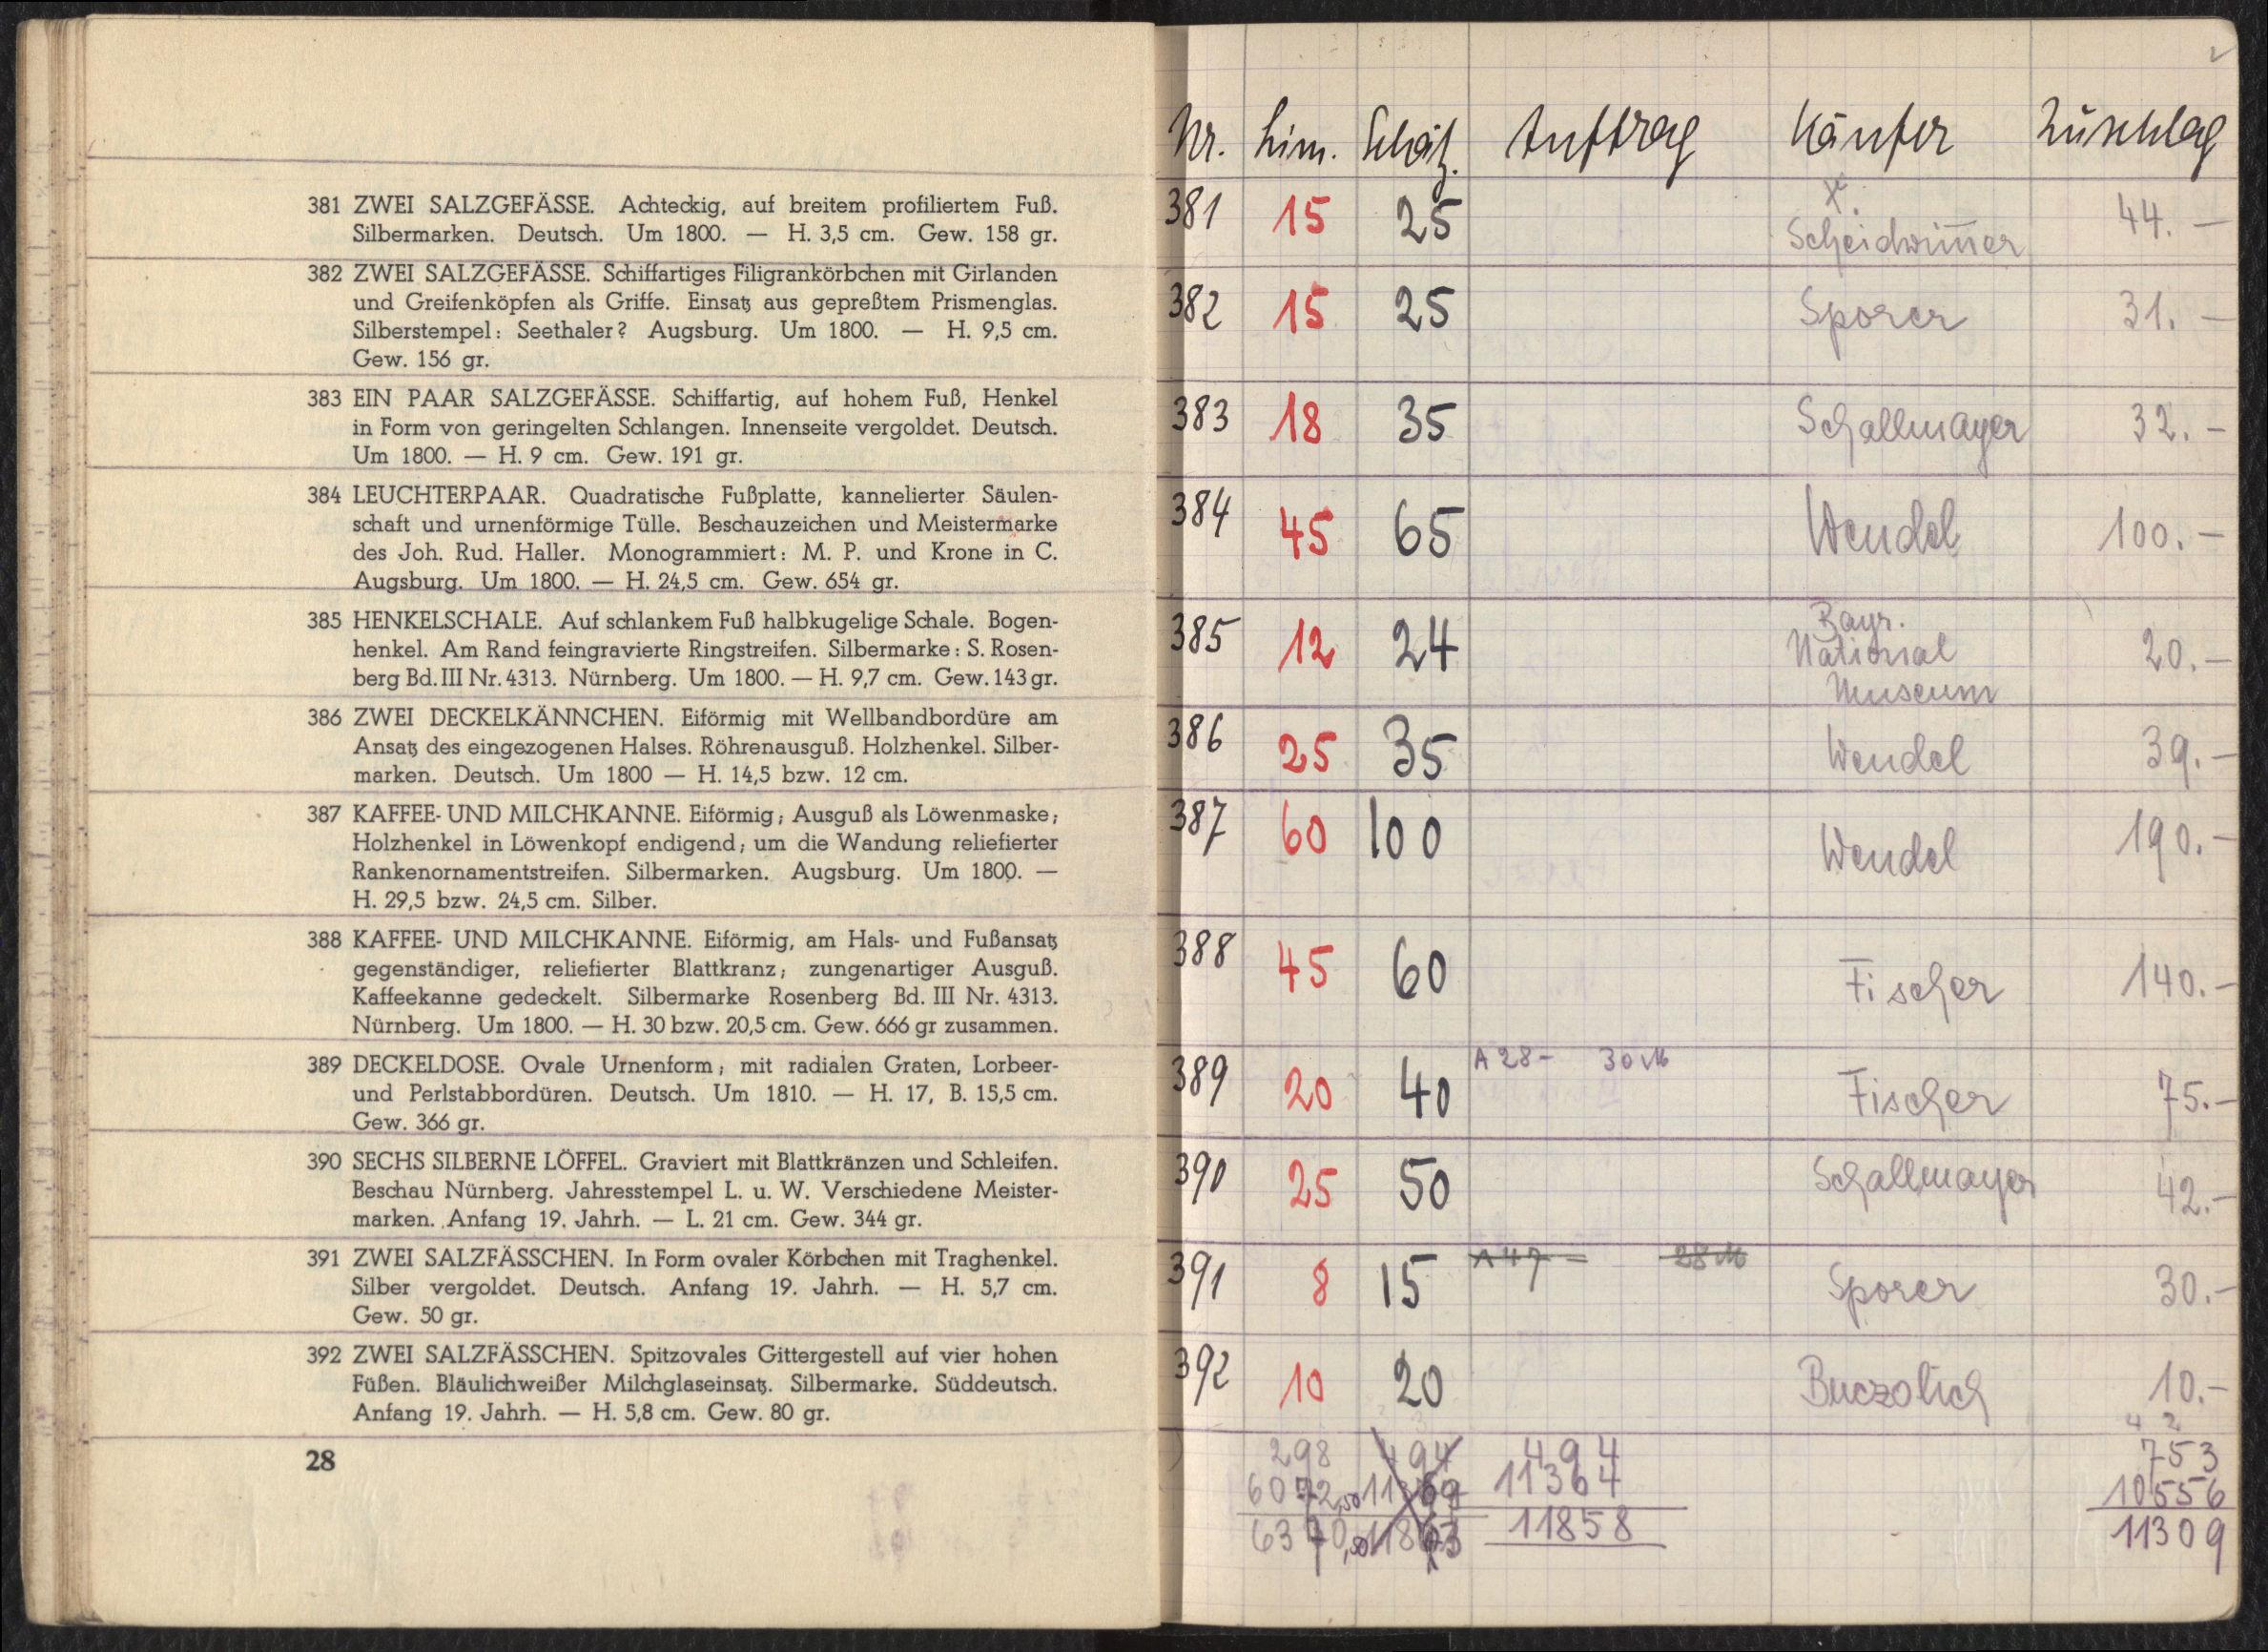 381 ZWEI SALZGEFÄSSE. Achteckig, auf breitem profiliertem Fuß.
Silbermarken. Deutsch. Um 1800. — H. 3,5 cm. Gew. 158 gr.
382 ZWEI SALZGEFÄSSE. Schiffartiges Filigrankörbchen mit Girlanden
und Greifenköpfen als Griffe. Einsatz aus gepreßtem Prismenglas.
Silberstempel: Seethaler? Augsburg. Um 1800. — H. 9,5 cm.
Gew. 156 gr.
383 EIN PAAR SALZGEFÄSSE. Schiffartig, auf hohem Fuß, Henkel
in Form von geringelten Schlangen. Innenseite vergoldet. Deutsch.
Um 1800. — H. 9 cm. Gew. 191 gr.
384 LEUCHTERPAAR. Quadratische Fußplatte, kannelierter Säulen-
schaft und urnenförmige Tülle. Beschauzeichen und Meistermarke
des Joh. Rud. Haller. Monogrammiert: M. P. und Krone in C.
Augsburg. Um 1800. — H. 24,5 cm. Gew. 654 gr.
385 HENKELSCHALE. Auf schlankem Fuß halbkugelige Schale. Bogen-
henkel. Am Rand feingravierte Ringstreifen. Silbermarke: S. Rosen-
berg Bd. III Nr. 4313. Nürnberg. Um 1800. — H. 9,7 cm. Gew. 143 gr.
386 ZWEI DECKELKÄNNCHEN. Eiförmig mit Wellbandbordüre am
Ansatz des eingezogenen Halses. Röhrenausguß. Holzhenkel. Silber-
marken. Deutsch. Um 1800 — H. 14,5 bzw. 12 cm.
387 KAFFEE- UND MILCHKANNE. Eiförmig; Ausguß als Löwenmaske;
Holzhenkel in Löwenkopf endigend; um die Wandung reliefierter
Rankenornamentstreifen. Silbermarken. Augsburg. Um 1800. —
H. 29,5 bzw. 24,5 cm. Silber.
388 KAFFEE- UND MILCHKANNE. Eiförmig, am Hals- und Fußansatz
gegenständiger, reliefierter Blattkranz; zungenartiger Ausguß.
Kaffeekanne gedeckelt. Silbermarke Rosenberg Bd. III Nr. 4313.
Nürnberg. Um 1800. — H. 30 bzw. 20,5 cm. Gew. 666 gr zusammen.
389 DECKELDOSE. Ovale Urnenform; mit radialen Graten, Lorbeer-
und Perlstabbordüren. Deutsch. Um 1810. — H. 17, B. 15,5 cm.
Gew. 366 gr.
390 SECHS SILBERNE LÖFFEL. Graviert mit Blattkränzen und Schleifen.
Beschau Nürnberg. Jahresstempel L. u. W. Verschiedene Meister-
marken. Anfang 19. Jahrh. — L. 21 cm. Gew. 344 gr.
391 ZWEI SALZFÄSSCHEN. In Form ovaler Körbchen mit Traghenkel.
Silber vergoldet. Deutsch. Anfang 19. Jahrh. — H. 5,7 cm.
Gew. 50 gr.
392 ZWEI SALZFÄSSCHEN. Spitzovales Gittergestell auf vier hohen
Füßen. Bläulichweißer Milchglaseinsatz. Silbermarke. Süddeutsch.
Anfang 19. Jahrh. — H. 5,8 cm. Gew. 80 gr.
28
Nr. Lim. Schätz. Auftrag Käufer Zuschlag
381 15 25 Scheidwimmer 44.—
382 15 25 Sporer 31.—
383 18 35 Schallmayer 32.—
384 45 65 Wendel 100.—
385 12 24 Bayr. National Museum 20.—
386 25 35 Wendel 39.—
387 60 100 Wendel 190.—
388 45 60 Fischer 140.—
389 20 40 A 28- 30 M Fischer 75.—
390 25 50 Schallmayer 42.—
391 8 15 A 47 — 28 M Sporer 30.—
392 10 20 Buczolich 10.—
4 2
298 494 494 753
6072,50 11364 10556
6370,50 11858 11309